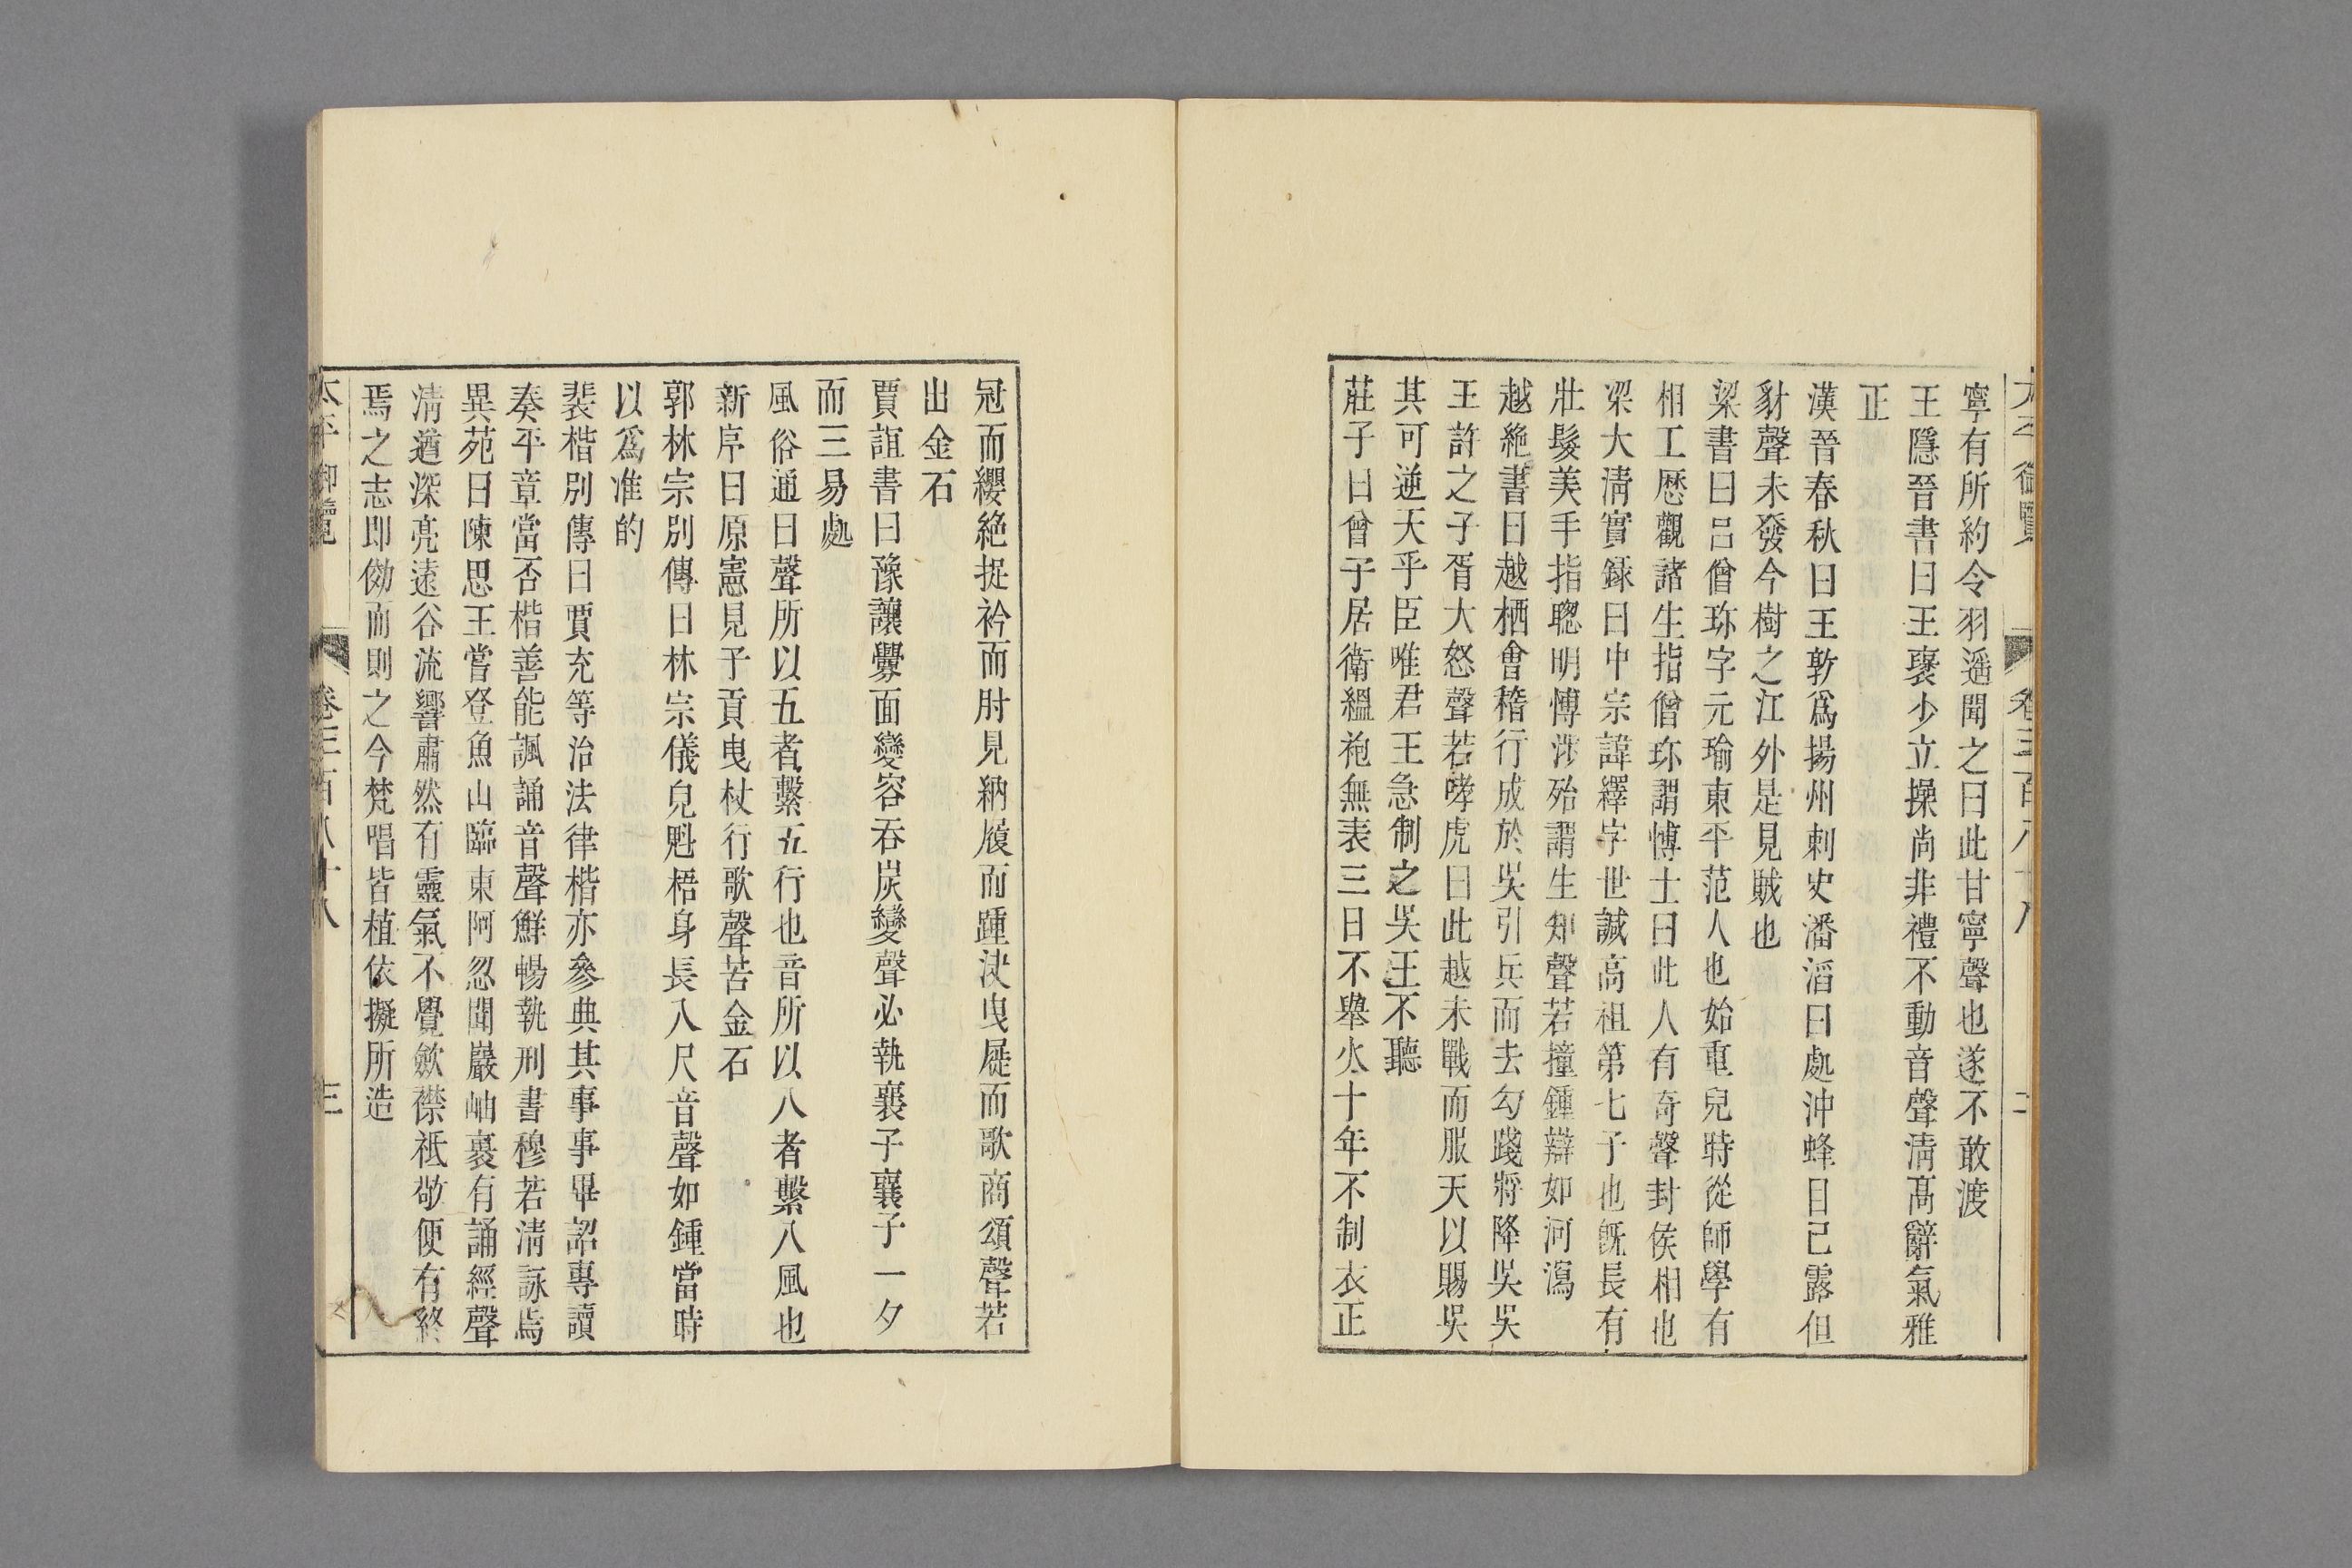 寧有所約令羽遥聞之曰此甘寧聲也遂不敢渡
王隱晉書曰王裒少立操尚非禮不動音聲淸髙辭氣雅
正
漢晉春秋曰王敦爲揚州刺史潘滔曰處沖蜂目己露但
豺聲未發今樹之江外是見賊也
梁書曰呂僧珎字元瑜東平范人也始童兒時從師學有
相工歴觀諸生指僧珎謂愽士曰此人有奇聲封侯相也
梁大淸實録曰中宗諱繹字世誠高祖第七子也旣長有
壯髮美手指聦明愽涉殆謂生知聲若撞鍾辯如河瀉
越絶書曰越栖會稽行成於吳引兵而去勾踐將降吳吳
王許之子胥大怒聲若哮虎曰此越未戰而服天以賜吳
其可逆天乎臣唯君王急制之吳王不聽
莊子曰曾子居衛緼袍無表三日不舉火十年不制衣正
冠而纓絶捉衿而肘見納履而踵決曳屣而歌商頌聲若
出金石
賈誼書曰豫讓釁面變容吞炭變聲必執襄子襄子一夕
而三易處
風俗通曰聲所以五者繫五行也音所以八者繫八風也
新序曰原憲見子貢曳杖行歌聲若金石
郭林宗別傳曰林宗儀皃魁梧身長八尺音聲如鍾當時
以爲准的
裴楷別傳曰賈充等治法律楷亦參典其事事畢詔專讀
奏平章當否楷善能諷誦音聲鮮暢執刑書穆若淸詠焉
異苑曰陳思王嘗登魚山臨東阿忽聞巖岫裏有誦經聲
淸遒深亮遠谷流響肅然有靈氣不覺歛襟祗敬便有終
焉之志即倣而則之今梵唱皆植依擬所造
太平御覽 卷三百八十八 三